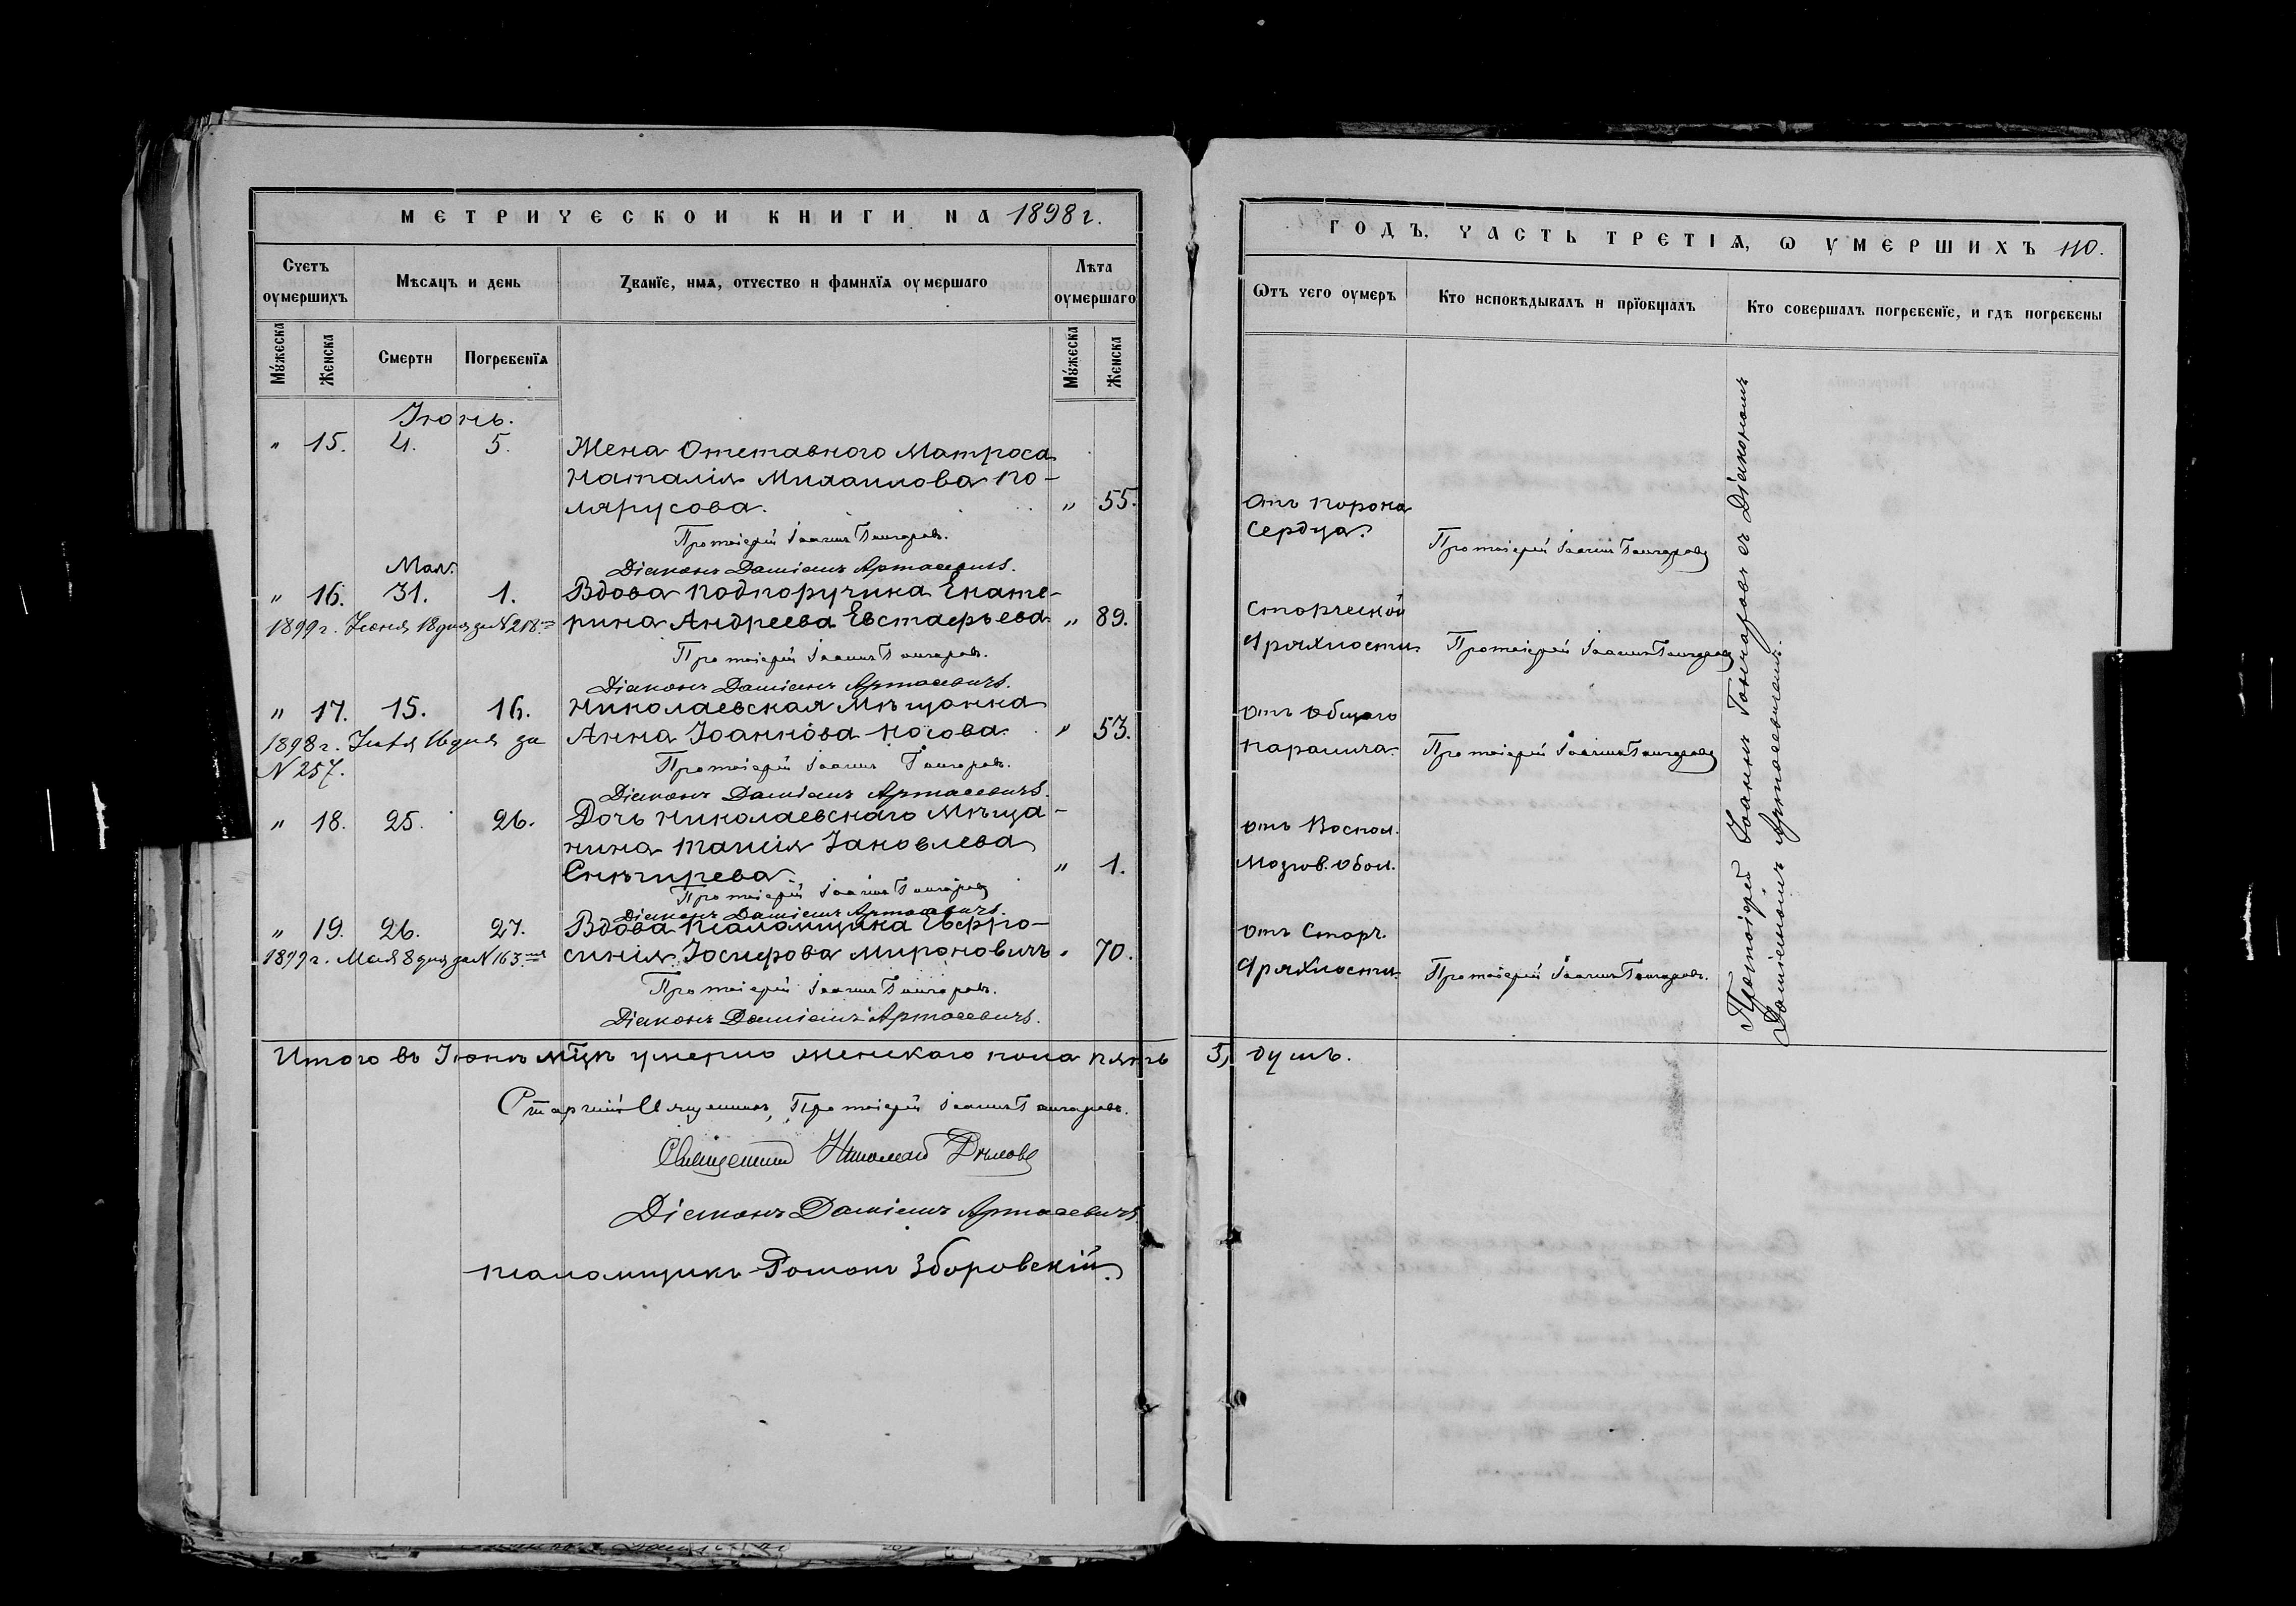 МЕТРИЧЕСКОЙ КНИГИ НА 1898 г.
Счетъ оумершихъ
Мѣсяцъ и день
Званїе, имя, отчество и фамилїя оумершаго
Лѣта оумершаго
Мужеска
Женска
Смерти
Погребенїя
Мужеска
Женска
Іюнь.
" 15. 4. 5. Жена Отставного Матроса
Наталія Михаилова По-
лярусова. " 55.
Протоіерей Іоаннъ Гончаровъ.
Діаконъ Даміанъ Артасевичъ.
Мая.
" 16. 31. 1. Вдова подпоручика Екате-
1899 г. Іюня 18 дня за № 218 рина Андреева Евстафьева " 89.
Протоіерей Іоаннъ Гончаровъ.
Діаконъ Даміанъ Артасевичъ.
" 17. 15. 16. Николаевская Мѣщанка
1898 г. 16 дня за Анна Іоаннова Носова. " 53.
№ 257.
Протоіерей Іоаннъ Гончаровъ.
Діаконъ Даміанъ Артасевичъ.
" 18. 25. 26. Дочь Николаевскаго Мѣща-
нина Таисія Іаковлева
Снѣгирева. " 1.
Протоіерей Іоаннъ Гончаровъ
Діаконъ Даміанъ Артасевичъ.
" 19. 26. 27. Вдова псаломщика Евфро-
1899 г. Мая 8 дня за № 163 синія Іосифова Мироновичъ " 70.
Протоіерей Іоаннъ Гончаровъ.
Діаконъ Даміанъ Артасевичъ.
Итого въ Іюнѣ мцѣ умерло женскаго пола пять
Старшій Священникъ, Протоіерей Іоаннъ Гончаровъ.
Священникъ Николай
Діаконъ Даміанъ Артасевичъ
псаломщикъ Романъ Зборовскій.
ГОДЪ, ЧАСТЬ ТРЕТІЯ, Ѡ УМЕРШИХЪ 110.
Ѿтъ чего оумеръ
Кто исповѣдывалъ и прїобщалъ
Кто совершалъ погребенїе, и гдѣ погребены
Отъ порока
Сердца.
Протоіерей Іоаннъ Гончаровъ
Старческой
дряхлости
Протоіерей Іоаннъ Гончаровъ
Отъ общаго
паралича.
Протоіерей Іоаннъ Гончаровъ
Отъ Воспал.
Мозгов. обол.
Отъ Старч.
дряхлости.
Протоіерей Іоаннъ Гончаровъ.
Протоіерей Іоаннъ Гончаровъ съ Діакономъ
Даміаномъ Артасевичемъ.
5, душъ.